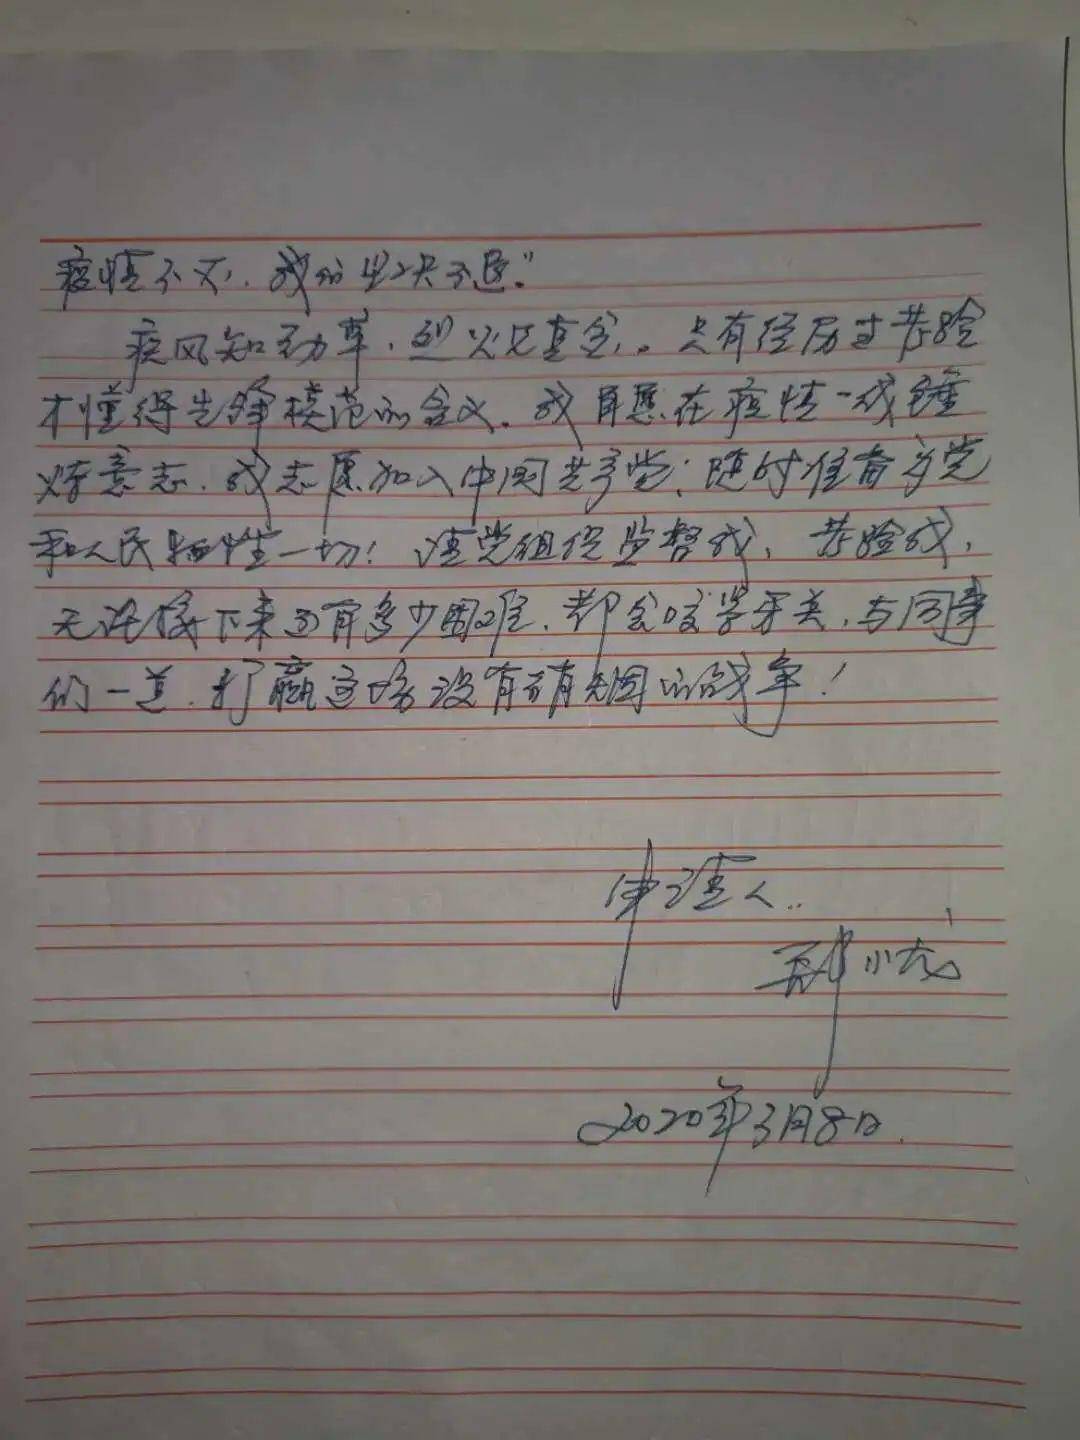 疫情不灭,我们坚决不退。"
疾风知劲草,烈火见真金。只有经历过考验
才懂得先锋模范的含义。我自愿在疫情一线锤
炼意志,我志愿加入中国共产党,随时准备为党
和人民牺牲一切!请党组织监督我,考验我,
无论接下来还有多少困难,都会咬紧牙关,与同事
们一道,打赢这场没有硝烟的战争!
申请人:
小龙
2020年3月8日